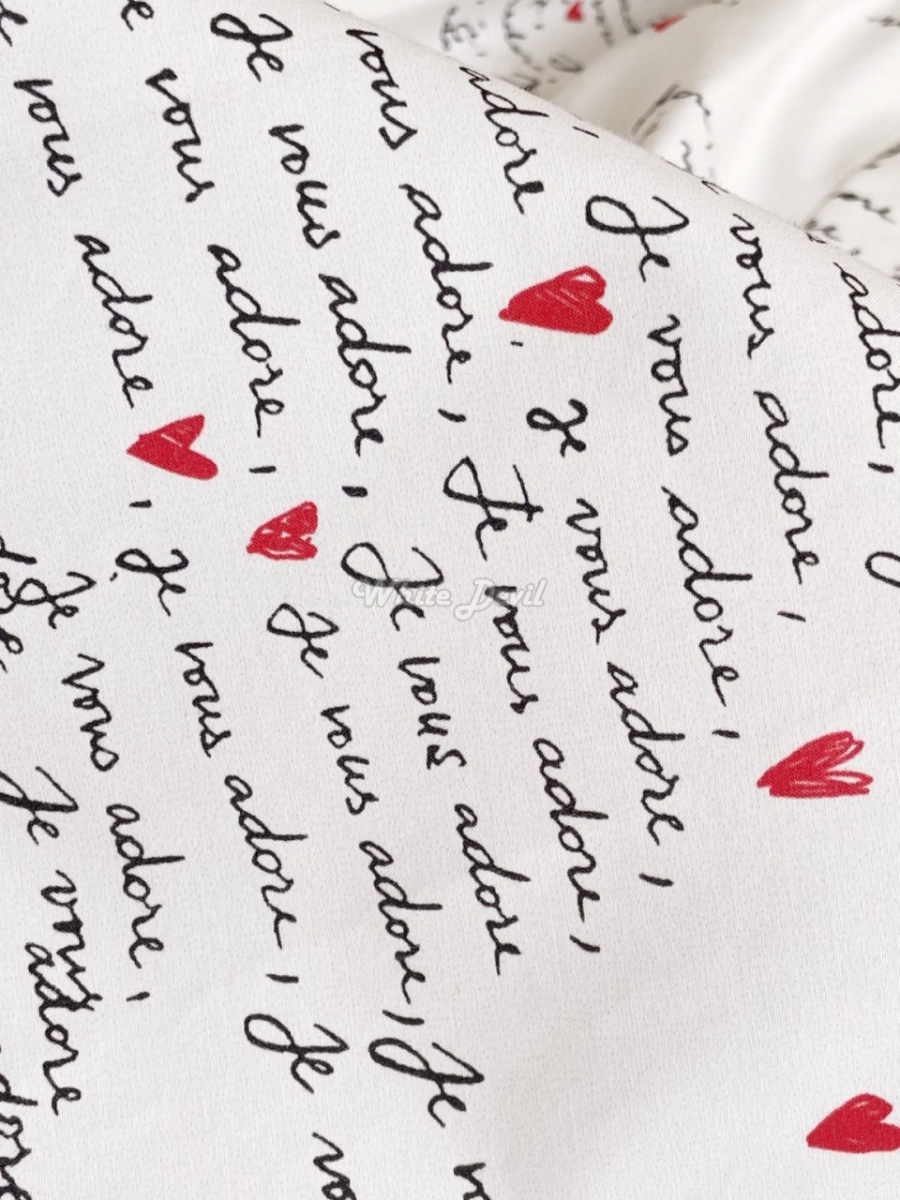 adore,
vous adore,
Je vous adore,
adore , je vous adore,
vous adore, Je vous adore,
Je vous adore, Je vous adore
vous adore, Je vous adore, Je
vous adore , Je vous adore, Je
Je vous adore,
Je vous
adore
White Devil